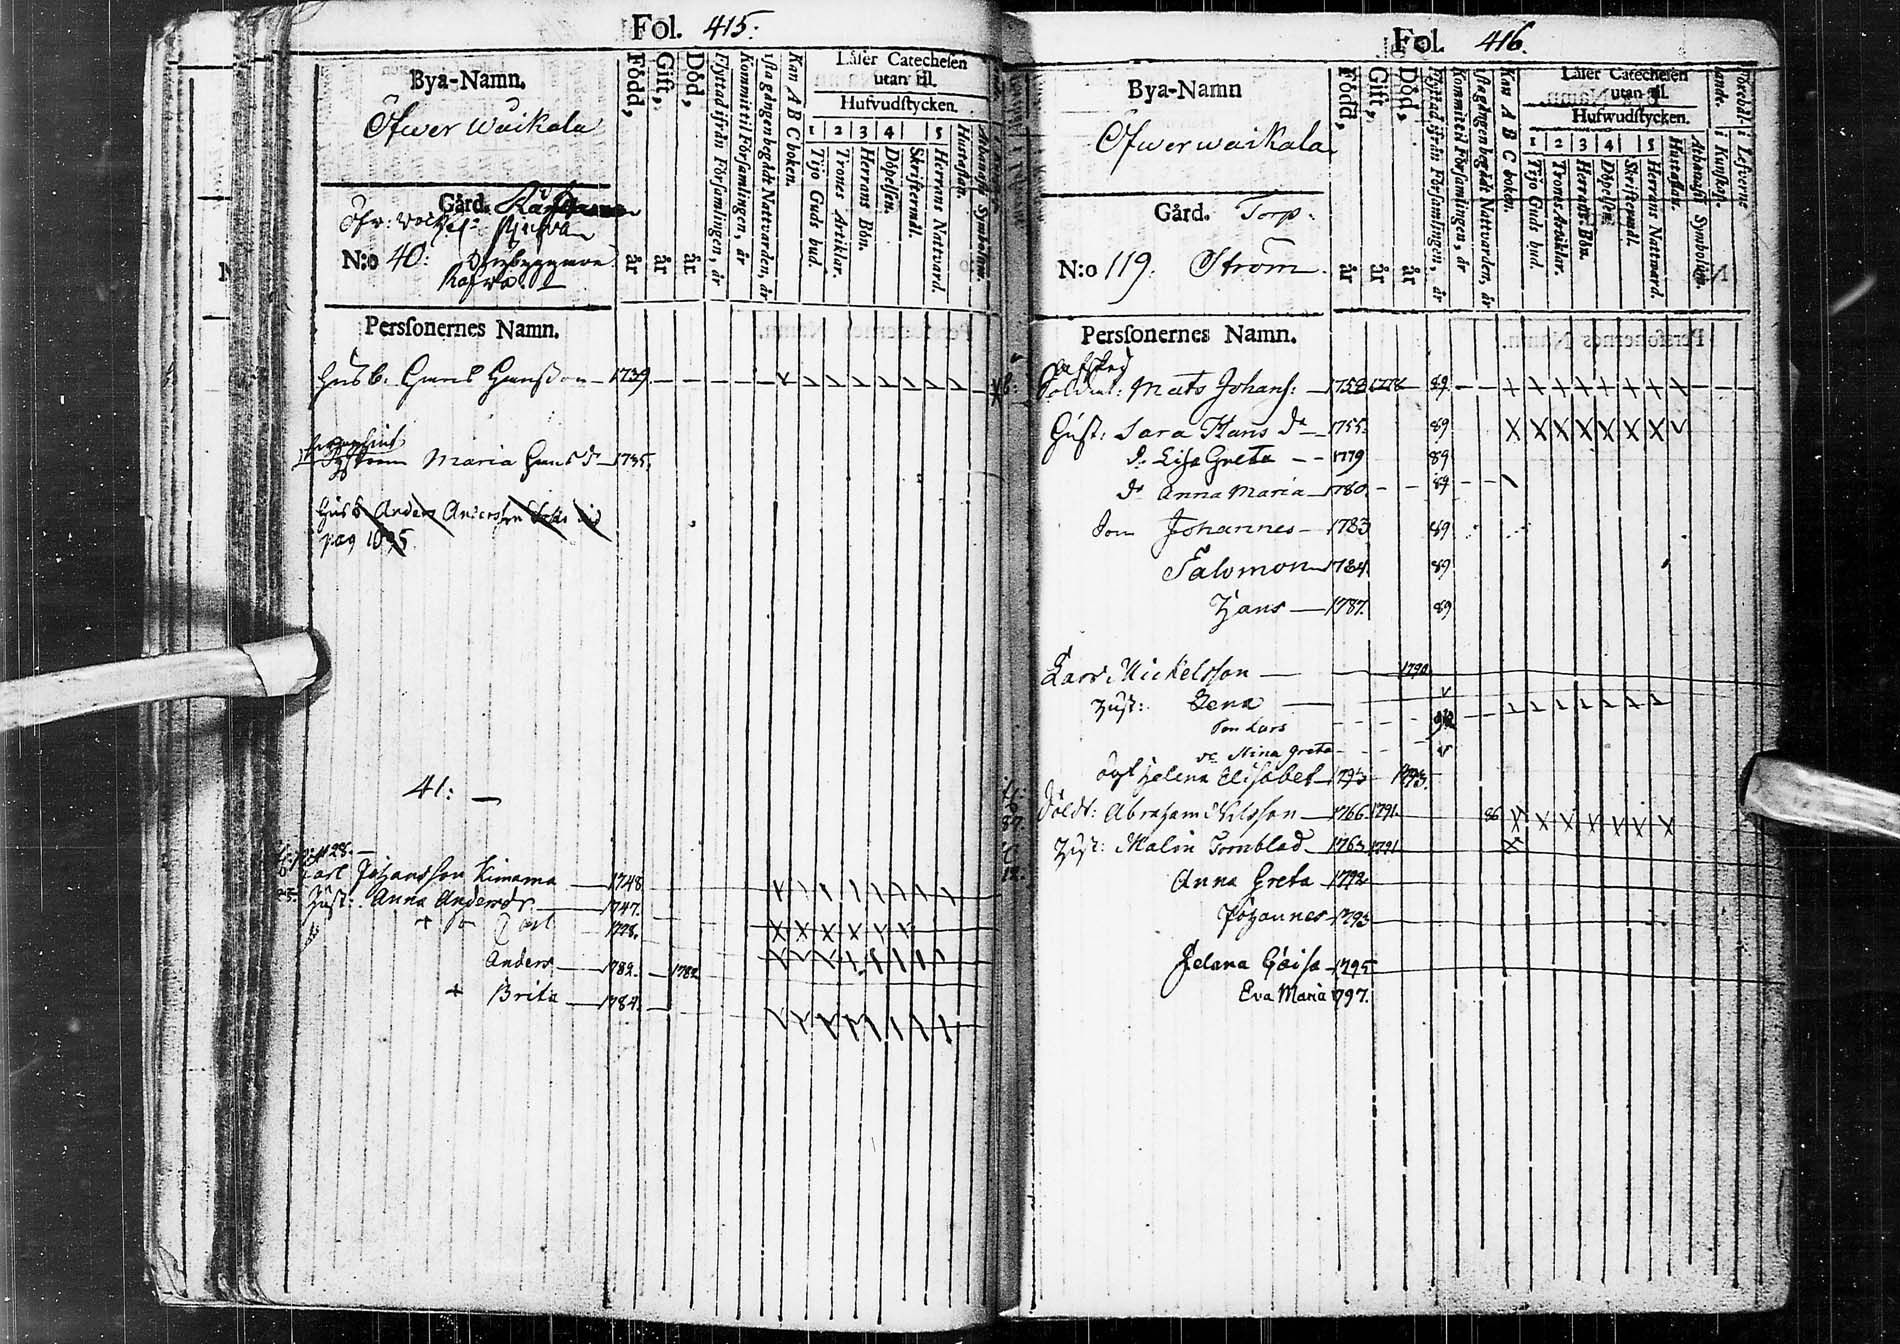 Fol. 415:
Bya-Namn.
Öfwer Waikala
Gård.
N:o 40:
Född, år
Gift, år
Död, år
Flyttad ifrån Församlingen, år
Kommit til Församlingen, år
1sta gången begådt Nattvarden, år
Kan A B C boken.
Läser Catechesen
utan til.
Hufvudstycken.
1 2 3 4 5
Tijo Guds bud.
Trones Artiklar.
Herrans Bön.
Döpelsen.
Skriftermål.
Herrans Nattvard.
Hustaflan.
Athanasii Symbolum.
Personernes Namn.
Husb: Hans Hansson 1739
Maria Hansd 1735.
Husb Anders Andersson
pag 1095
41: —
Carl Johansson Kimama 1748
Hust: Anna Andersdr 1747.
+ Son Carl 1778.
Anders 1782. 1782
+ Brita 1784.
Fol. 416.
Bya-Namn
Öfwer waikala
Gård. Torp.
N:o 119. Ström
Född, år
Gift, år
Död, år
Flyttad ifrån Församlingen, år
Kommit til Församlingen, år
1sta gången begådt Nattvarden, år
Kan A B C boken.
Läser Catechesen
utan til.
Hufwudstycken.
1 2 3 4 5
Tijo Guds bud.
Trones Artiklar.
Herrans Bön.
Döpelsen.
Skriftermål.
Herrans Nattward.
Hustaflan.
Athanasii Symbolum.
i Kunskap.
i Lefverne
Personernes Namn.
Afsked
Soldat: Mats Johans: 1752 1778 89
Hust: Sara Hans dr 1755. 89
dr Lisa Greta 1779 89
dr Anna Maria 1780. 89
Son Johannes 1783 89
Salomon 1784 89
Hans 1787. 89
Lars Mickelsson 1790
Hust: Lena
Son Lars
dr Stina Greta
Helena Elisabet 1793 1793.
Soldt: Abraham Nilsson 1766 1791. 86
Hust: Malin Tornblad 1763 1791
Anna Greta 1792
Johannes 1793
Helena Caisa 1795
Eva Maria 1797.